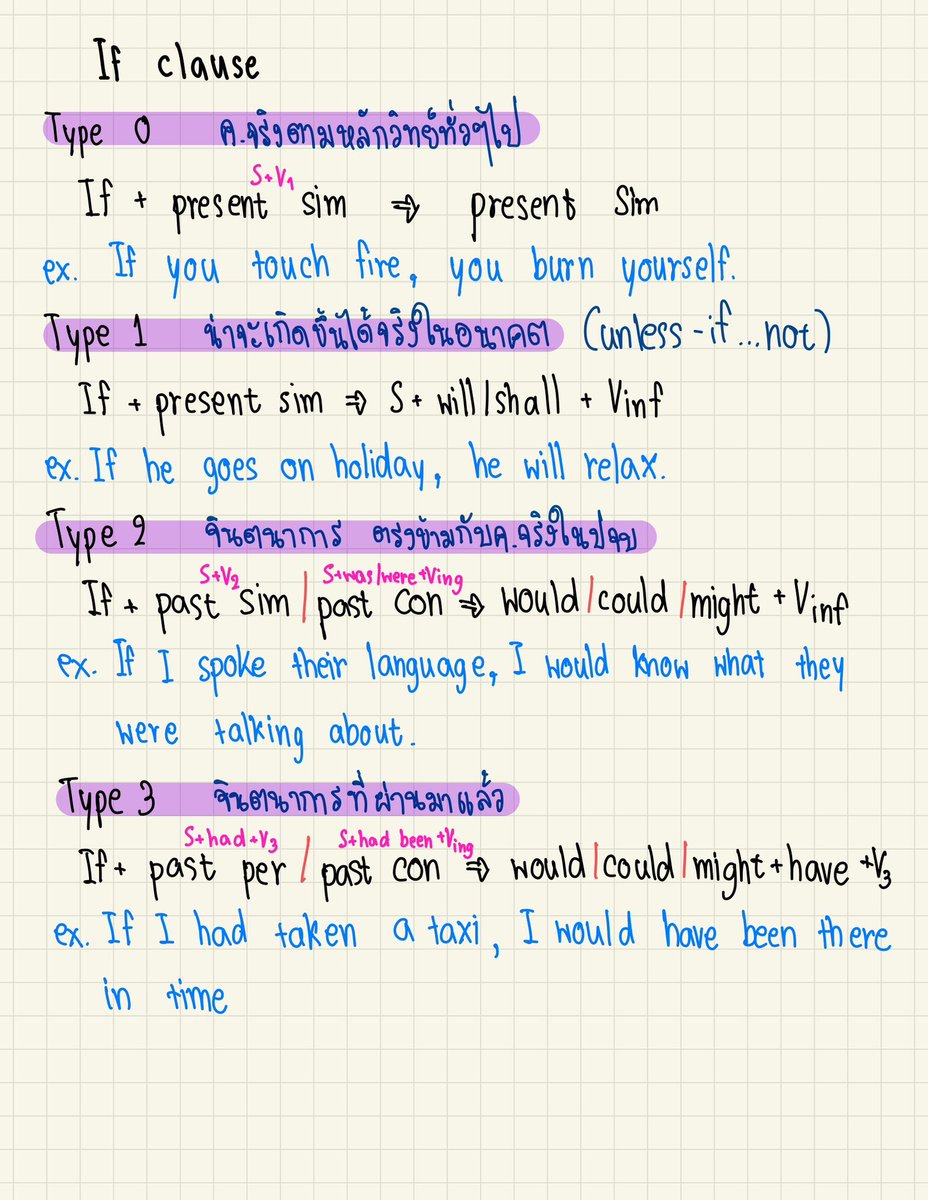 If clause
Type 0 ค.จริงตามหลักวิทย์ทั่วๆไป
S+V1
If + present sim ⇒ present sim
ex. If you touch fire, you burn yourself.
Type 1 น่าจะเกิดขึ้นได้จริงในอนาคต (unless - if...not)
If + present sim ⇒ S + will/shall + Vinf
ex. If he goes on holiday, he will relax.
Type 2 จินตนาการ ตรงข้ามกับค.จริงในปจบ
S+V2 S+was/were+Ving
If + past sim / past con ⇒ would/could/might + Vinf
ex. If I spoke their language, I would know what they
were talking about.
Type 3 จินตนาการที่ผ่านมาแล้ว
S+had+V3 S+had been+Ving
If + past per / past con ⇒ would/could/might+have+V3
ex. If I had taken a taxi, I would have been there
in time